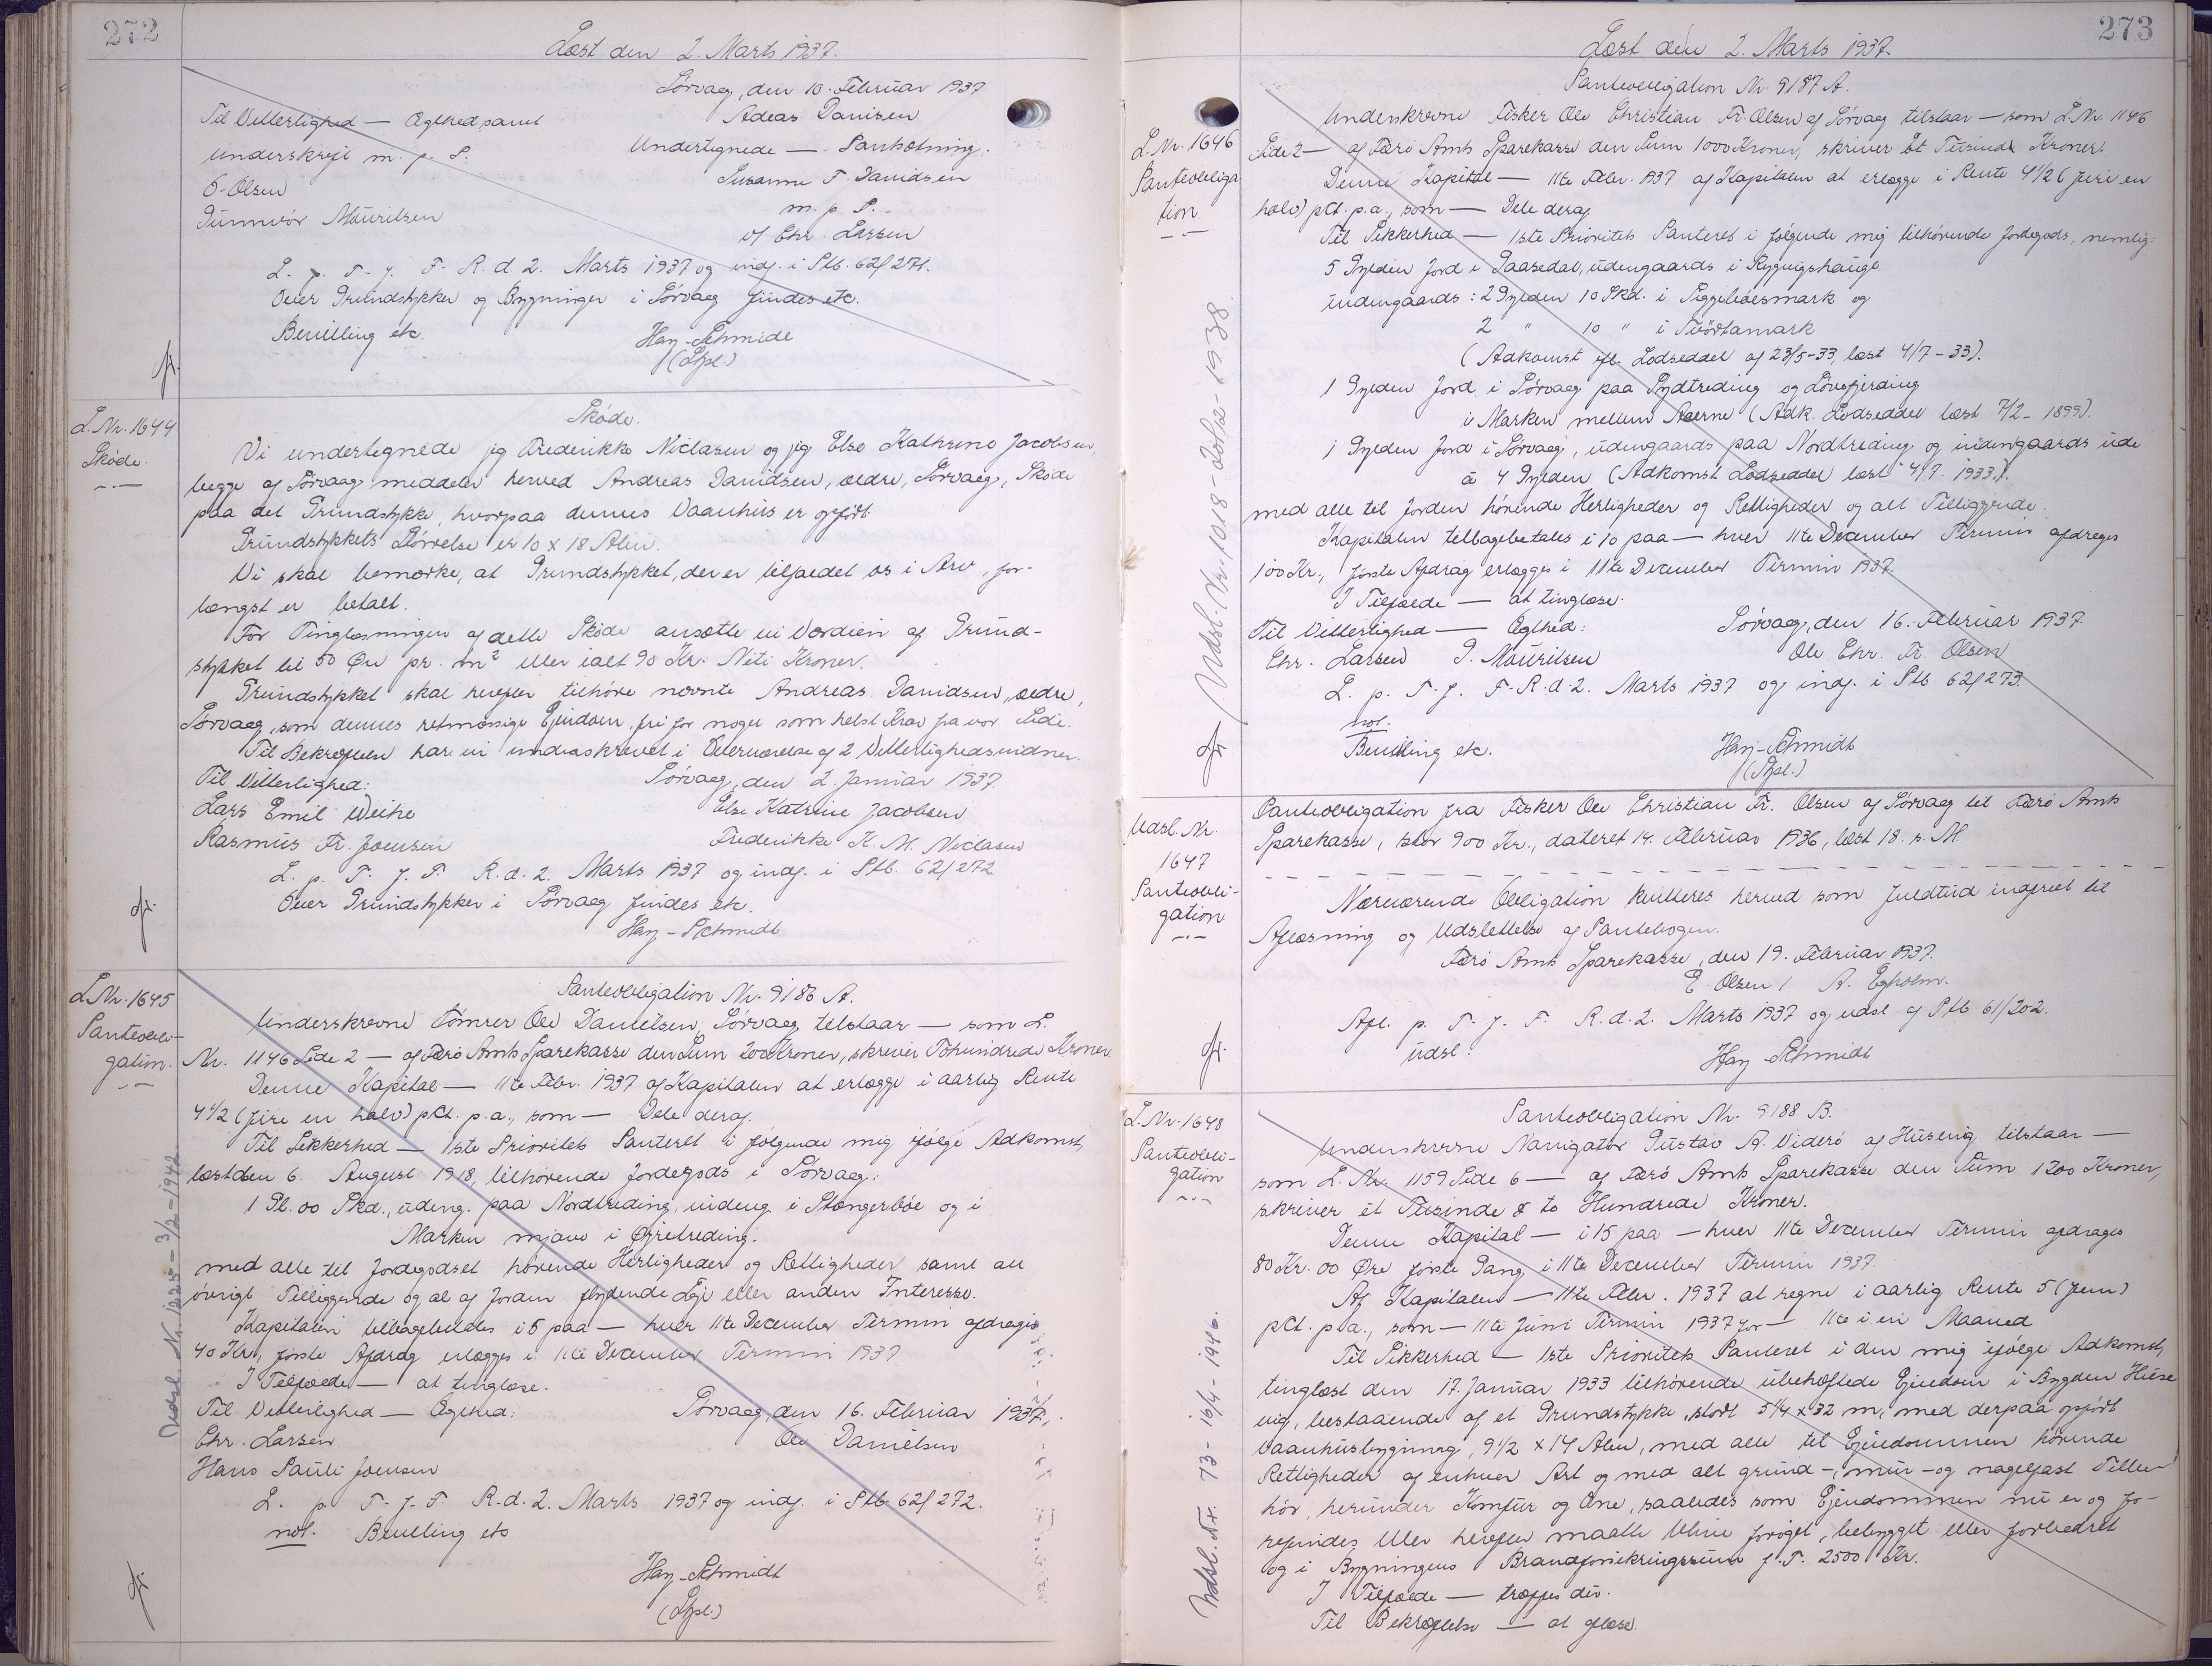 272
Læst den 2. Marts 1937.
Sørvaag, den 10. Februar 1937
Til Vitterlighed — Ægthed samt
Underskrift m. p. P.
O. Olsen
Gunnvór Mouritsen
Undertegnede — Panhætning.
Susanne F. Davidsen
m. p. P.
v/ Chr. Larsen
L. p. T. f. F. R. d. 2. Marts 1937 og indf. i Ptb. 62/271.
Over Grundstykker og Bygninger i Sørvaag findes etc.
Bevilling etc.
Hay-Schmidt
(Sfpl.)
L. Nr. 1644
Skøde.
Skøde.
Vi undertegnede jeg Frederikke Niclasen og jeg Else Kathrine Jacobsen,
begge af Sørvaag meddeler herved Andreas Davidsen, ældre, Sørvaag, Skøde
paa det Grundstykke, hvorpaa dennes Vaanhus er opført.
Grundstykkets Størrelse er 10 x 18 Alen.
Vi skal bemærke, at Grundstykket, der er tilfaldet os i Arv, for-
længst er betalt.
For Tinglæsningen af dette Skøde ansætte vi Værdien af Grund-
stykket til 50 Øre pr. m² eller ialt 90 Kr. Niti Kroner.
Grundstykket skal herefter tilhøre nævnte Andreas Davidsen, ældre,
Sørvaag, som dennes retmæssige Ejendom, fri for nogen som helst Krav fra vor Side.
Til Bekræftelse har vi underskrevet i Overværelse af 2 Vitterlighedsvidner.
Til Vitterlighed:
Sørvaag, den 2. Januar 1937.
Lars Emil Weihe
Else Katrine Jacobsen
Rasmus Fr. Joensen
Frederikke K. M. Niclasen
L. p. T. f. F. R. d. 2. Marts 1937 og indf. i Ptb. 62/272
Over Grundstykker i Sørvaag findes etc.
Hay-Schmidt
L. Nr. 1645
Panteobli-
gation.
Panteobligation Nr. 9186 A.
Underskrevne Tømrer Ole Danielsen, Sørvaag tilstaar — som L.
Nr. 1146 Side 2 — af Færø Amts Sparekasse den Sum 200 Kroner, skriver Tohundrede Kroner.
Denne Kapital — 11te Febr. 1937 af Kapitalen at erlægge i aarlig Rente
4 1/2 (fire en halv) pCt. p.a., som — Dele deraf.
Til Sikkerhed — 1ste Prioritets Panteret i følgende mig ifølge Adkomst,
læst den 6. August 1918, tilhørende Jordegods i Sørvaag:
1 Gl. 00 Skd., udeng. paa Nordtreding, indeng. i Stongerbøe og i
Marken mjavo i Øfretreding.
med alle til Jordegodset hørende Herligheder og Rettigheder samt alt
øvrigt Tilliggende og al af Jorden flydende Leje eller anden Interesse.
Kapitalen tilbagebetales i 5 paa — hver 11te December Termin afdrages
40 Kr., første Afdrag erlægges i 11te December Termin 1937
I Tilfælde — at tinglæse.
Til Vitterlighed — Ægthed:
Sørvaag, den 16. Februar 1937.
Chr. Larsen
Ole Danielsen
Hans Pauli Joensen
L. p. T. f. F. R. d. 2. Marts 1937 og indf. i Ptb. 62/272.
not. Bevilling etc
Hay-Schmidt
(Sfpl.)
Udsl. Nr. 1225 - 3/2 - 1942
273
Læst den 2. Marts 1937.
L. Nr. 1646
Panteobliga
tion.
Panteobligation Nr. 9187 A.
Underskrevne Fisker Ole Christian Fr. Olsen af Sørvaag tilstaar — som L. Nr. 1146
Side 2 — af Færø Amts Sparekasse den Sum 1000 Kroner, skriver Et Tusinde Kroner.
Denne Kapital — 11te Febr. 1937 af Kapitalen at erlægge i Rente 4 1/2 (fire en
halv) pCt. p.a., som — Dele deraf.
Til Sikkerhed — 1ste Prioritets Panteret i følgende mig tilhørende Jordegods, nemlig:
5 Gylden Jord i Gaasedal, udengaards i Rygvigshauge
indengaards: 2 Gylden 10 Skd. i Siggetboesmark og
2 " 10 " i Tvørtamark
(Adkomst ifl. Lodseddel af 23/5-33, læst 4/7-33).
1 Gylden Jord i Sørvaag paa Sydtreding og Lõnefjerding
i Marken mellem Aaerne (Adk. Lodseddel læst 7/2-1899).
1 Gylden Jord i Sørvaag, udengaards paa Nordtreding og indengaards ude
á 4 Gylden (Adkomst Lodseddel læst 4/7. 1933).
med alle til Jorden hørende Herligheder og Rettigheder og alt Tilliggende.
Kapitalen tilbagebetales i 10 paa — hver 11te December Termin afdrages
100 Kr., første Afdrag erlægges i 11te December Termin 1937.
I Tilfælde — at tinglæse.
Til Vitterlighed — Ægthed:
Sørvaag, den 16. Februar 1937.
Chr. Larsen G. Mouritsen
Ole Chr. Fr. Olsen
L. p. T. f. F. R. d. 2. Marts 1937 og indf. i Ptb 62/273.
not.
Bevilling etc.
Hay-Schmidt
(Sfpl.)
Udsl. Nr. 1647
Panteobli-
gation
Panteobligation fra Fisker Ole Christian Fr. Olsen af Sørvaag til Færø Amts
Sparekasse, stor 900 Kr., dateret 14. Februar 1936, læst 18. s. M.
Nærværende Obligation kvitteres herved som fuldtud indfriet til
Aflæsning og Udslettelse af Pantebogen.
Færø Amts Sparekasse, den 19. Februar 1937.
E. Olsen / A. Egholm.
Afl. p. T. f. F. R. d. 2. Marts 1937 og udsl. af Ptb 61/202.
udsl.
Hay Schmidt
L. Nr. 1648
Panteobli-
gation
Panteobligation Nr. 9188 B.
Underskrevne Navigatør Gustav A. Viderø af Husevig tilstaar —
som L. Nr. 1159 Side 6 — af Færø Amts Sparekasse den Sum 1200 Kroner,
skriver et Tusinde & to Hundrede Kroner.
Denne Kapital — i 15 paa — hver 11te December Termin afdrages
80 Kr. 00 Øre første Gang i 11te December Termin 1937.
Af Kapitalen — 11te Febr. 1937 at regne i aarlig Rente 5 (fem)
pCt. p.a., som — 11te Juni Termin 1937 for — 11te i en Maaned
Til Sikkerhed — 1ste Prioritets Panteret i den mig ifølge Adkomst,
tinglæst den 17. Januar 1933 tilhørende ubehæftede Ejendom i Bygden Huse
vig, bestaaende af et Grundstykke, stort 51/4 x 32 m, med derpaa opført
Vaanhusbygning, 9 1/2 x 14 Alen, med alle til Ejendommen hørende
Rettigheder af enhver Art og med alt grund-, mur- og nagelfast Tilbe
hør, herunder Komfur og Ovne, saaledes som Ejendommen nu er og fo-
refindes eller herefter maatte blive forøget, bebygget eller forbedret
og i Bygningens Brandforsikringssum f. T. 2500 Kr.
I Tilfælde — træffes der.
Til Bekræftelse — at aflæse.
Udsl. Nr. 73 - 16/4 - 1946.